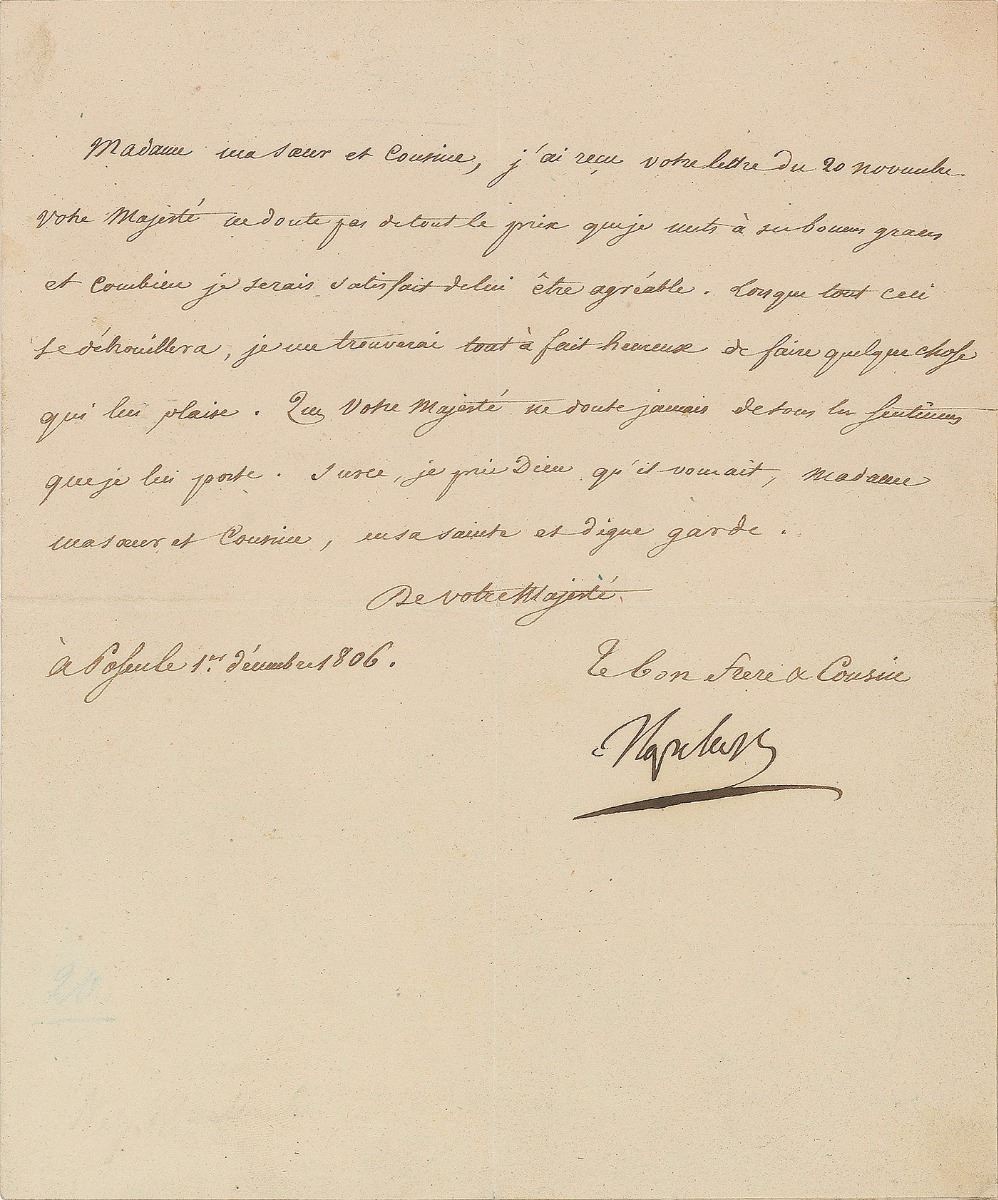 Madame ma Sœur et Cousine, j'ai reçu votre lettre du 20 novembre.
Votre Majesté ne doute pas de tout le prix que je mets à ses bonnes graces
et combien je serais satisfait de lui être agréable. Lorsque tout ceci
se débrouillera, je me trouverai tout à fait heureux de faire quelque chose
qui lui plaise. Que Votre Majesté ne doute jamais de tous les sentimens
que je lui porte. Sur ce, je prie Dieu qu'il vous ait, Madame
ma sœur et Cousine, en sa sainte et digne garde.
De votre Majesté
à Posen le 1er décembre 1806.
Le bon frere & Cousin
Napoleon
20